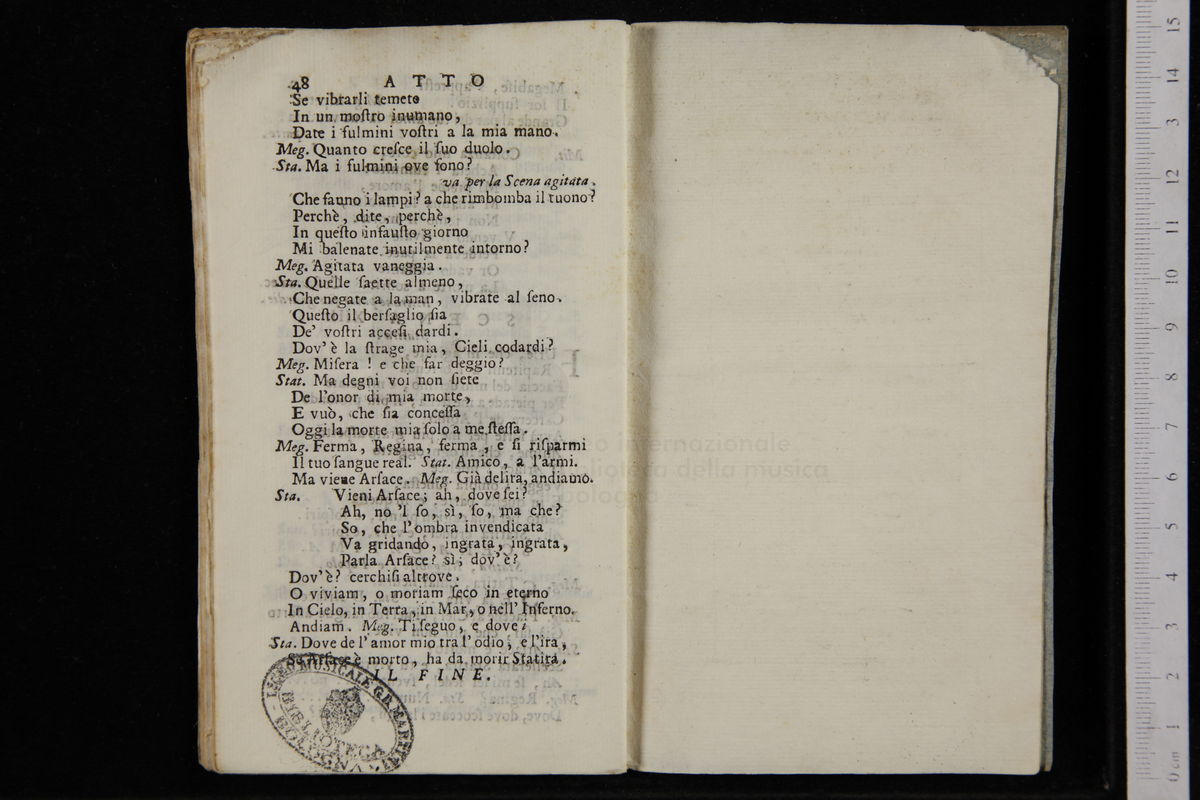 48 ATTO
Se vibrarli temete
In un moſtro inumano,
Date i fulmini voſtri a la mia mano.
Meg. Quanto creſce il ſuo duolo.
Sta. Ma i fulmini ove ſono?
va per la Scena agitata.
Che fanno i lampi? a che rimbomba il tuono?
Perchè, dite, perchè,
In queſto infauſto giorno
Mi balenate inutilmente intorno?
Meg. Agitata vaneggia.
Sta. Quelle ſaette almeno,
Che negate a la man, vibrate al ſeno.
Queſto il berſaglio ſia
De' voſtri acceſi dardi.
Dov' è la ſtrage mia, Cieli codardi?
Meg. Miſera ! e che far deggio?
Stat. Ma degni voi non ſiete
De l'onor di mia morte,
E vuò, che ſia conceſſa
Oggi la morte mia ſolo a me ſteſſa.
Meg. Ferma, Regina, ferma, e ſi riſparmi
Il tuo ſangue real. Stat. Amico, a l'armi.
Ma viene Arſace. Meg. Già delira, andiamo.
Sta. Vieni Arſace; ah, dove ſei?
Ah, no 'l ſo, sì, ſo, ma che?
So, che l'ombra invendicata
Va gridando, ingrata, ingrata,
Parla Arſace? sì; dov' è?
Dov' è? cerchiſi altrove.
O viviam, o moriam ſeco in eterno
In Cielo, in Terra, in Mar, o nell' Inferno.
Andiam. Meg. Ti ſeguo, e dove?
Sta. Dove de l' amor mio tra l' odio, e l'ira,
Se Arſace è morto, ha da morir Statira.
IL FINE.
LICEO MUSICALE G.B. MARTINI
BIBLIOTECA
BOLOGNA
museo internazionale
biblioteca della musica
bologna
0 cm 1 2 3 4 5 6 7 8 9 10 11 12 13 14 15